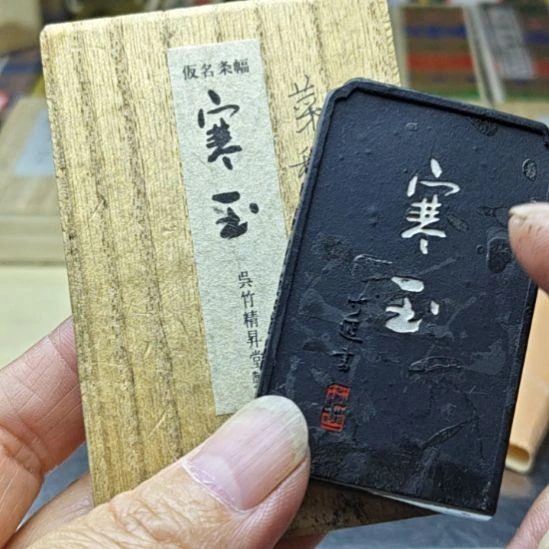 仮名条幅
寒玉
呉竹精昇堂製
菜種
寒玉